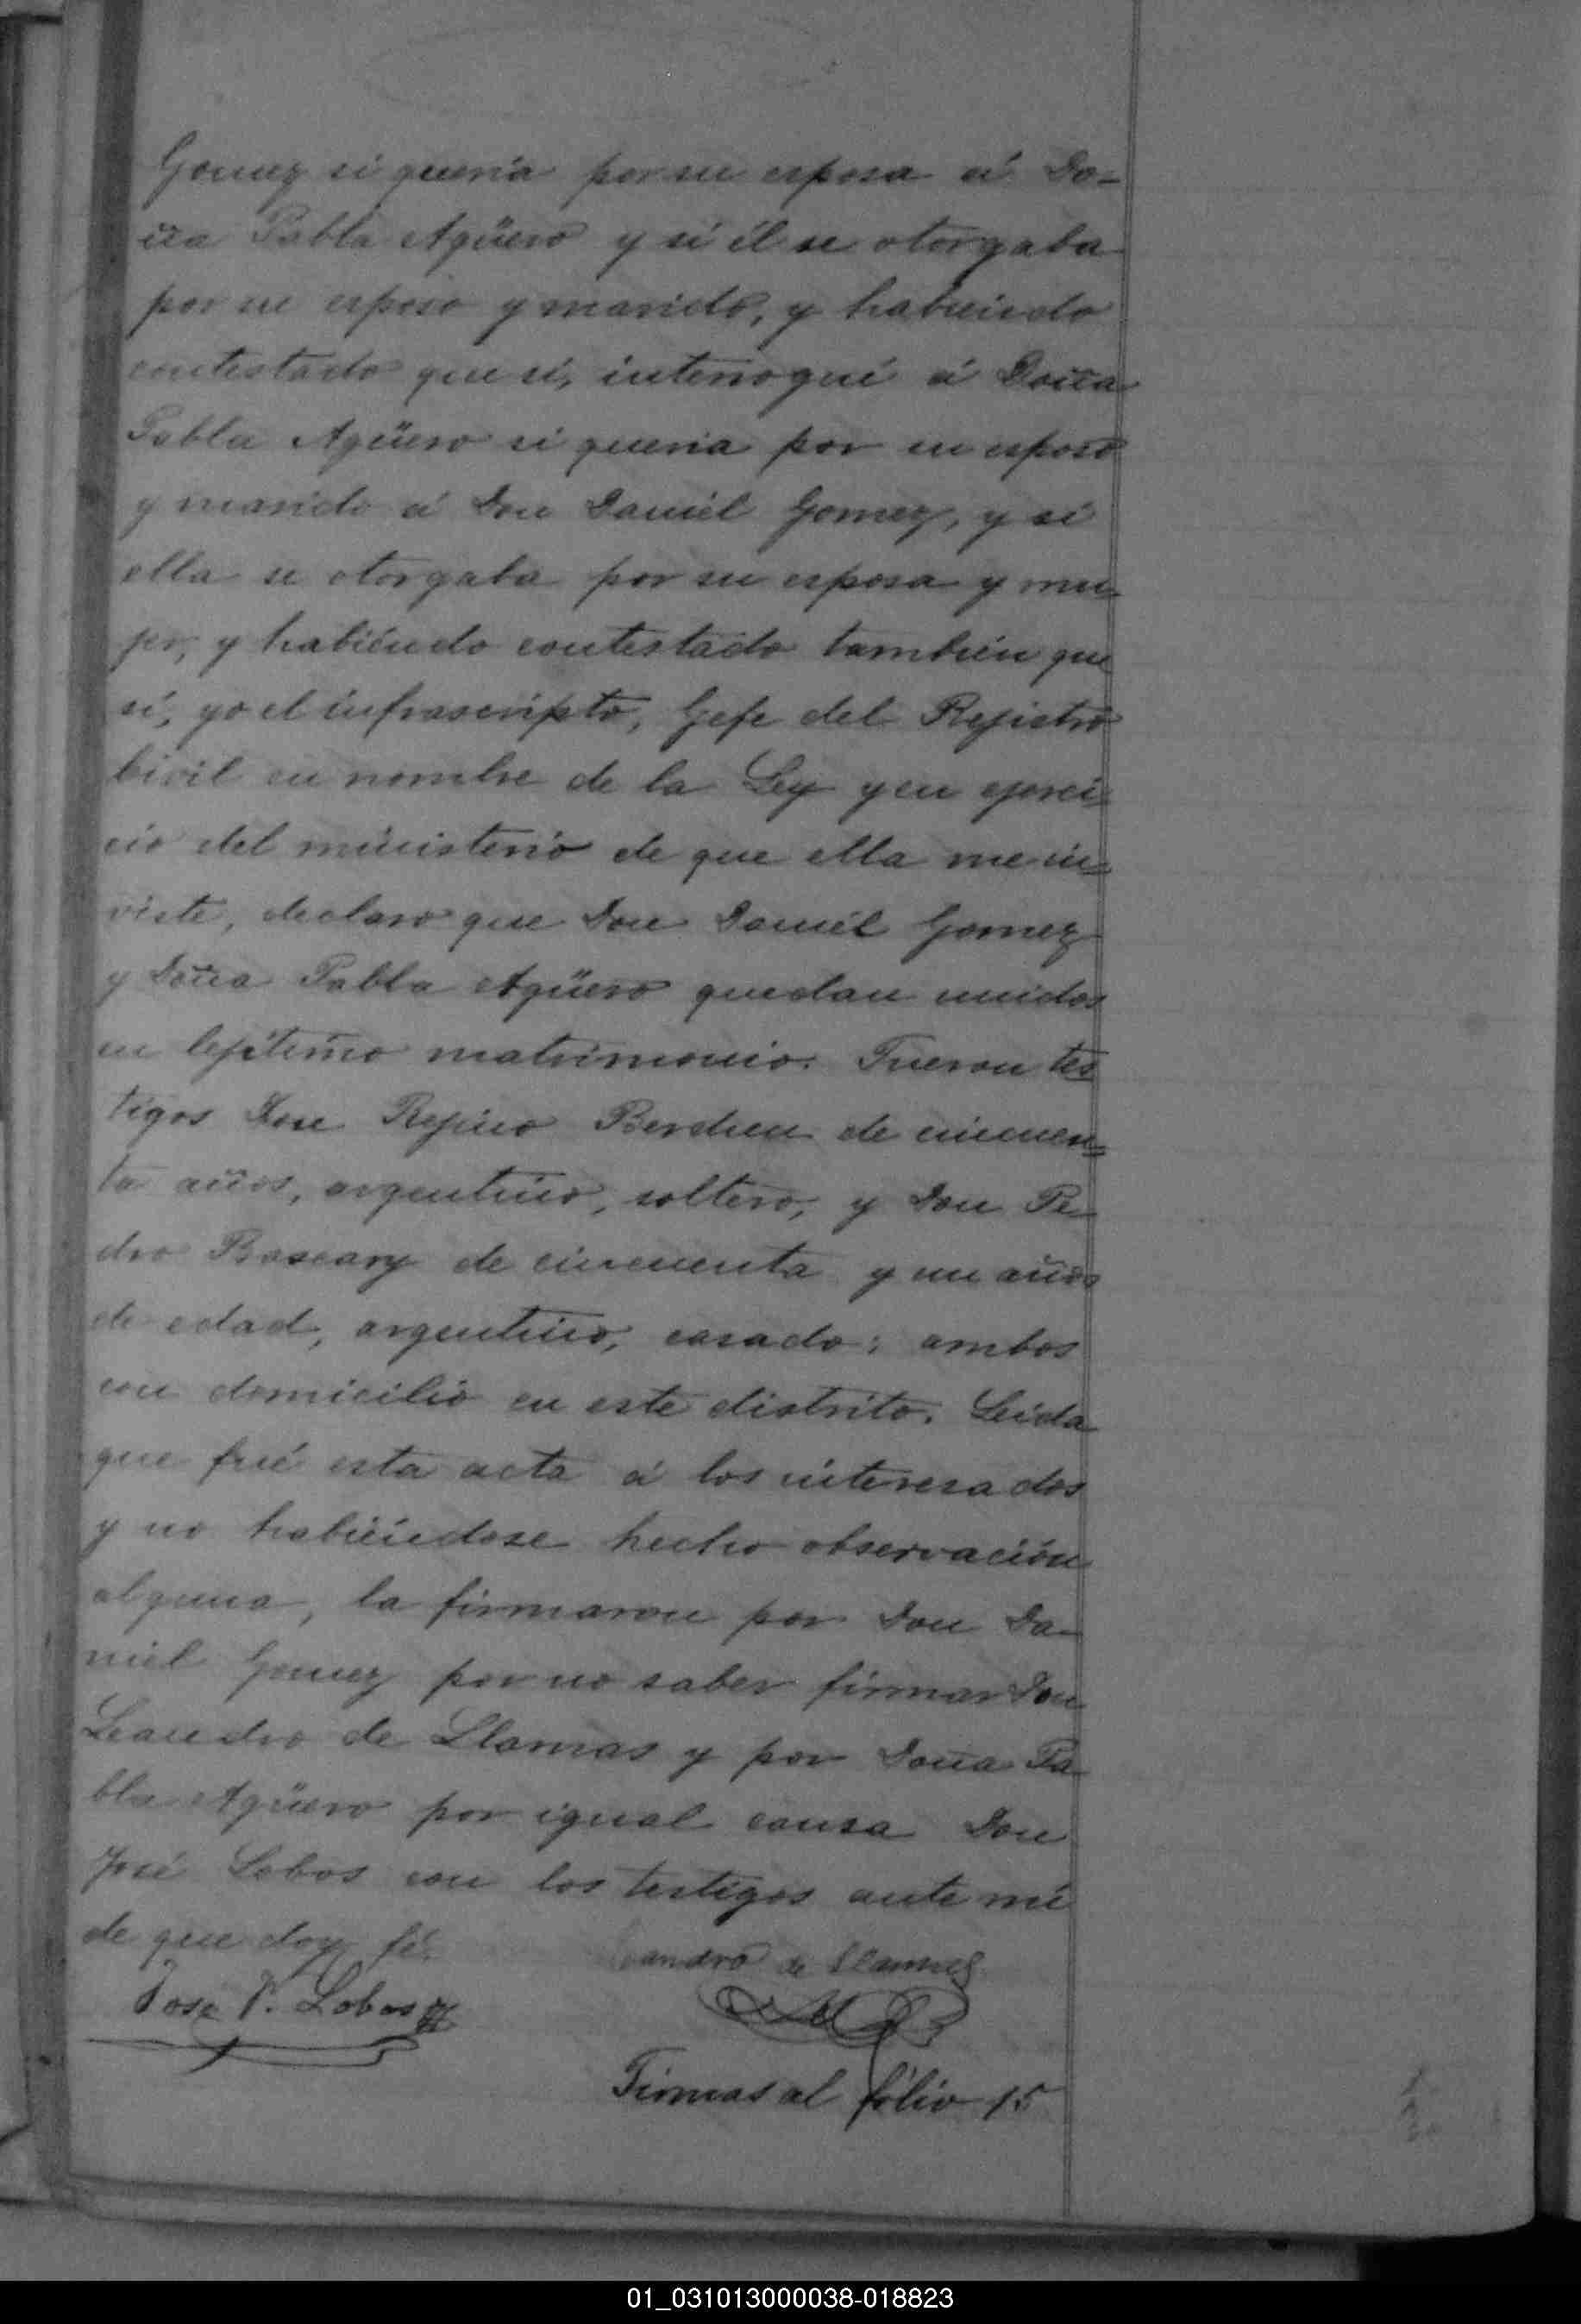 Gomez si queria por su esposa á Do-
ña Pabla Agüero y si él se otorgaba
por su esposo y marido, y habiendo
contestado que sí, interrogué á Doña
Pabla Agüero si queria por su esposo
y marido á Don Daniel Gomez, y si
ella se otorgaba por su esposa y mu-
jer, y habiéndo contestado tambien que
sí, yo el infrascripto, Gefe del Rejistro
Civil en nombre de la Ley y en ejerci-
cio del ministerio de que ella me in-
viste, declaro que Don Daniel Gomez
y Doña Pabla Agüero quedan unidos
en lejítimo matrimonio. Fueron tes-
tigos Don Rejino Berdieu de cincuen-
ta años, argentino, soltero, y Don Pe-
dro Bascary de cincuenta y un años
de edad, argentino, casado: ambos
con domicilio en este distrito. Leida
que fué esta acta á los interesados
y no habiéndose hecho observación
alguna, la firmaron por Don Da-
niel Gomez por no saber firmar Don
Leandro de Llamas y por Doña Pa-
bla Agüero por igual causa Don
José Lobos con los testigos ante mí
de que doy fé.
Leandro de Llamas
Jose V. Lobos
Firmas al fólio 15
01_031013000038-018823